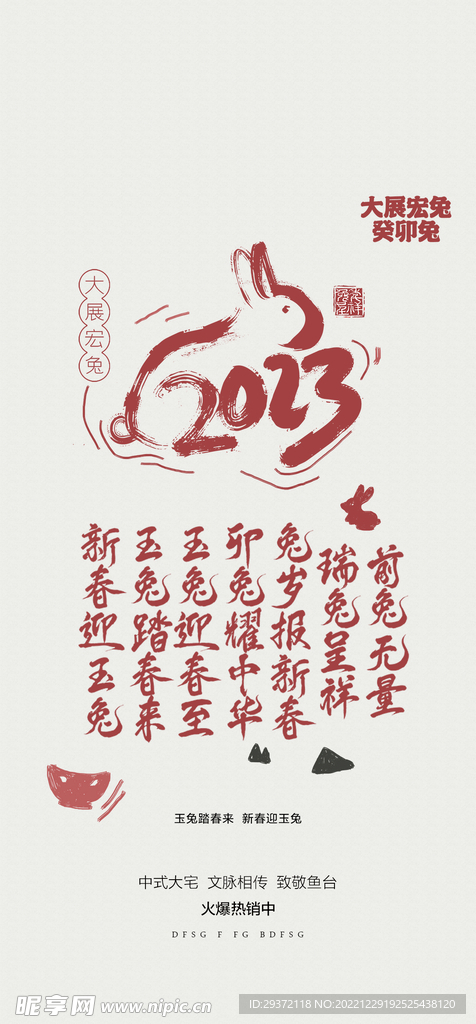 大展宏兔
癸卯兔
大展宏兔
2023
前兔无量
瑞兔呈祥
兔岁报新春
卯兔耀中华
玉兔迎春至
玉兔踏春来
新春迎玉兔
玉兔踏春来 新春迎玉兔
中式大宅 文脉相传 致敬鱼台
火爆热销中
DFSG F FG BDFSG
昵享网 www.nipic.cn
ID:29372118 NO:20221229192525438120